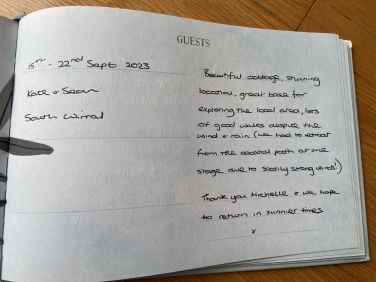 GUESTS
15th - 22nd Sept 2023
Kate & Sean
South Wirral
Beautiful cottage, stunning
location, great base for
exploring the local area, lots
of good walks despite the
wind & rain (we had to retreat
from the coastal path at one
stage due to scarily strong winds!)
Thank you Michelle & we hope
to return in sunnier times
x